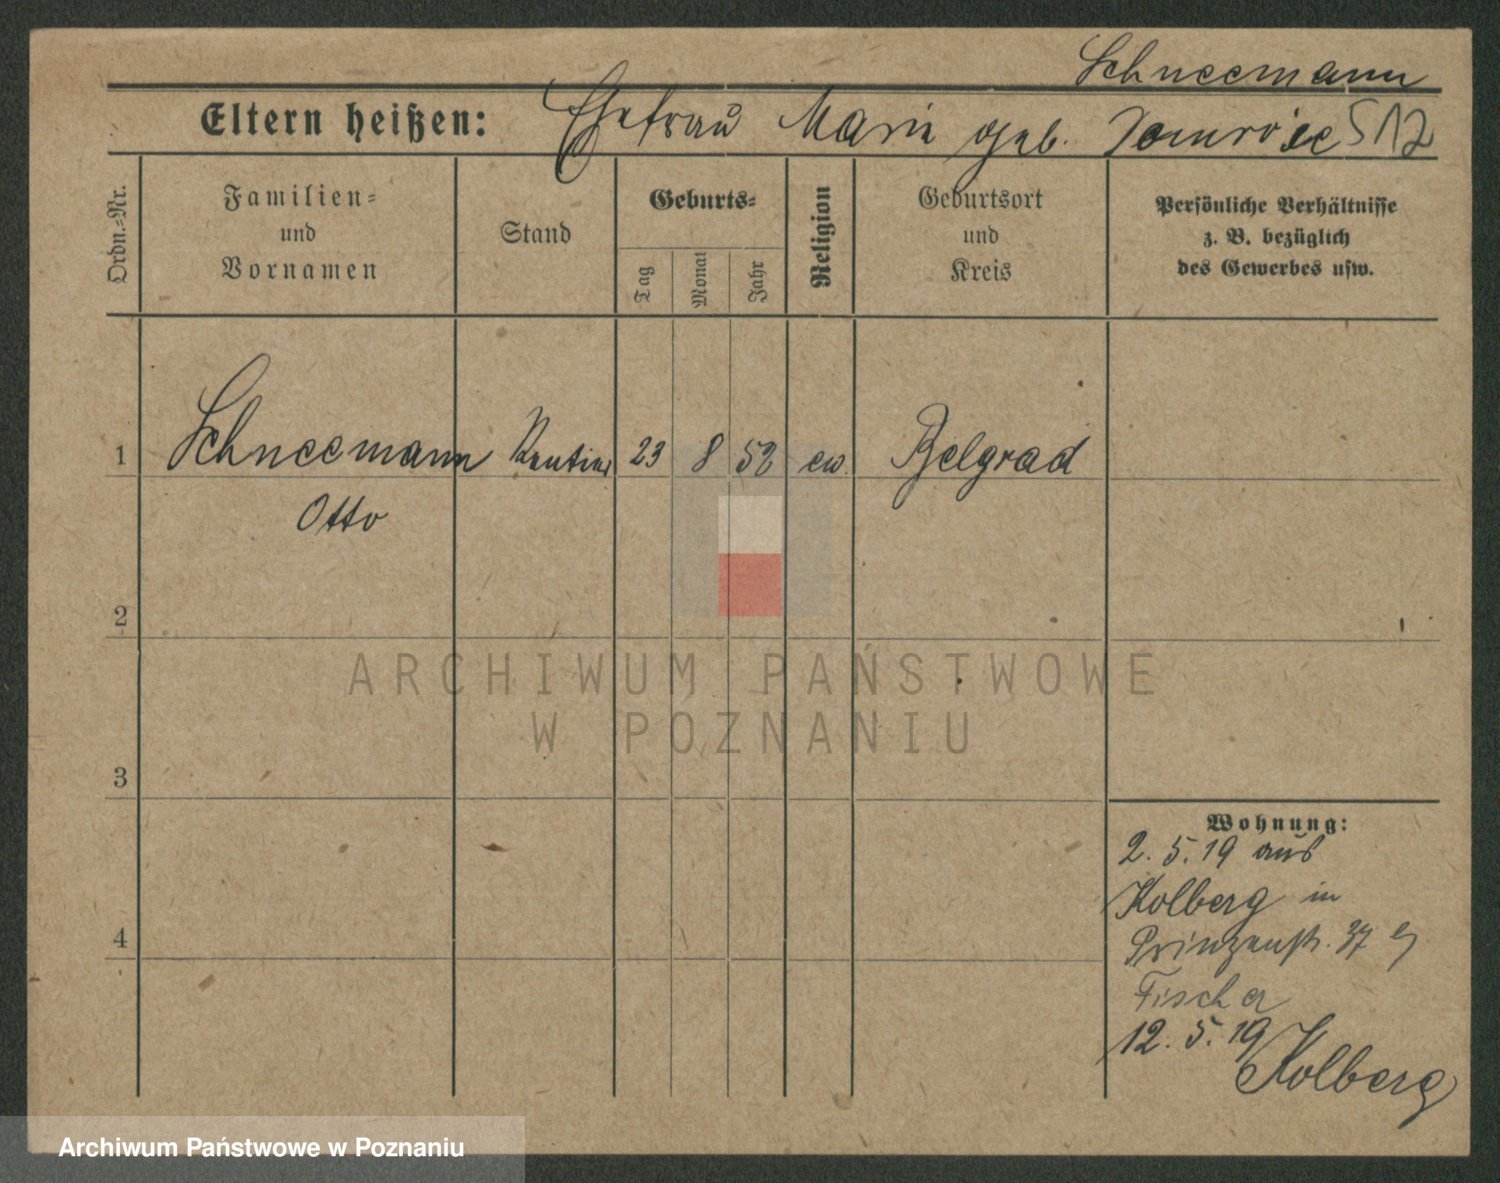 Schneemann
Eltern heißen: Ehefrau Marie geb. 512
Ordn.-Nr.
Familien-
und
Vornamen
Stand
Geburts-
Tag
Monat
Jahr
Religion
Geburtsort
und
Kreis
Persönliche Verhältnisse
z. B. bezüglich
des Gewerbes usw.
1 Schneemann Rentier 23 8 52 ev. Belgrad
Otto
2
3
4
Wohnung:
2. 5. 19 aus
Kolberg in
Prinzenstr. 37
Fischer
12. 5. 19
Kolberg
ARCHIWUM PAŃSTWOWE
W POZNANIU
Archiwum Państwowe w Poznaniu